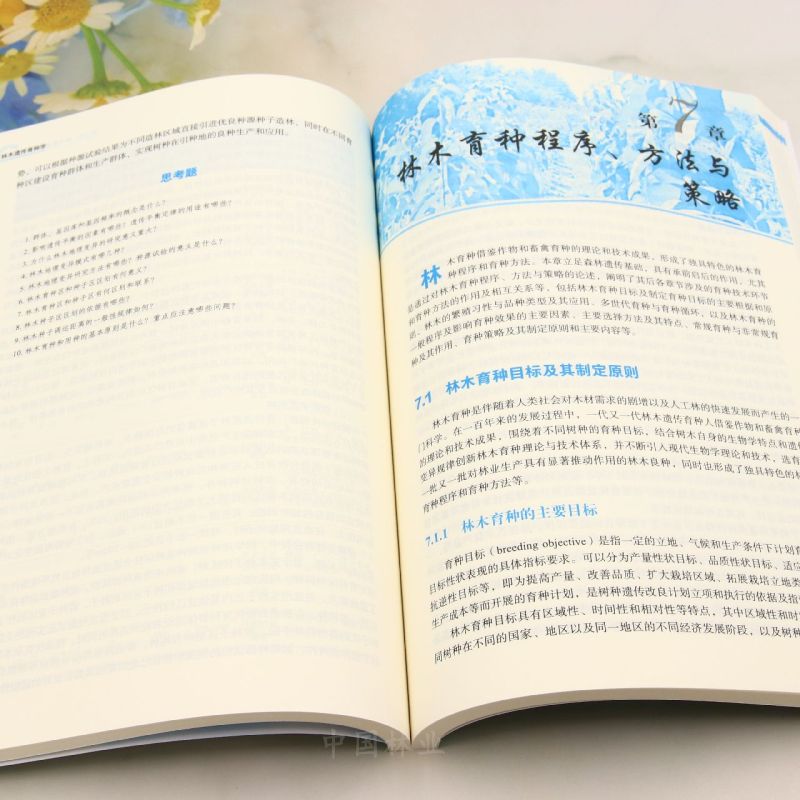 林木遗传育种学
势，可以根据种源试验结果为不同造林区域直接引进优良种源种子造林，同时在不同育
种区建设育种群体和生产群体，实现树种在引种地的良种生产和应用。
思考题
1. 群体、基因库和基因频率的概念是什么？
2. 影响遗传平衡的因素有哪些？遗传平衡定律的用途有哪些？
3. 为什么林木地理变异的研究意义重大？
4. 林木地理变异模式有哪几种？
5. 林木地理变异研究方法有哪些？种源试验的意义是什么？
6. 林木育种区和种子区区划有何意义？
7. 林木育种区和种子区有何区别和联系？
8. 林木种子区区划的依据有哪些？
9. 林木种子调运距离的一般性规律如何？
10. 林木育种和用种的基本原则是什么？重点应注意哪些问题？
第7章
林木育种程序、方法与
策略
林木育种借鉴作物和畜禽育种的理论和技术成果，形成了独具特色的林木育
种程序和育种方法。本章立足森林遗传基础，具有承前启后的作用，尤其
是通过对林木育种程序、方法与策略的论述，阐明了其后各章节涉及的育种技术环节
和育种方法的作用及相互关系等，包括林木育种目标及制定育种目标的主要根据和原
则、林木的繁殖习性与品种类型及其应用、多世代育种与育种循环，以及林木育种的
一般程序及影响育种效果的主要因素、主要选择方法及其特点、常规育种与非常规育
种及其作用、育种策略及其制定原则和主要内容等。
7.1 林木育种目标及其制定原则
林木育种是伴随着人类社会对木材需求的剧增以及人工林的快速发展而产生的一
门科学。在一百年来的发展过程中，一代又一代林木遗传育种人借鉴作物和畜禽育种
的理论和技术成果，围绕着不同树种的育种目标，结合树木自身的生物学特点和遗
变异规律创新林木育种理论与技术体系，并不断引入现代生物学理论和技术，选育
一批又一批对林业生产具有显著推动作用的林木良种，同时也形成了独具特色的林
育种程序和育种方法等。
7.1.1 林木育种的主要目标
育种目标（breeding objective）是指一定的立地、气候和生产条件下计划育
目标性状表现的具体指标要求。可以分为产量性状目标、品质性状目标、适应
抗逆性目标等，即为提高产量、改善品质、扩大栽培区域、拓展栽培立地类
生产成本等而开展的育种计划，是树种遗传改良计划立项和执行的依据及指
林木育种目标具有区域性、时间性和相对性等特点，其中区域性和时
同树种在不同的国家、地区以及同一地区的不同经济发展阶段，以及树种
中国林业